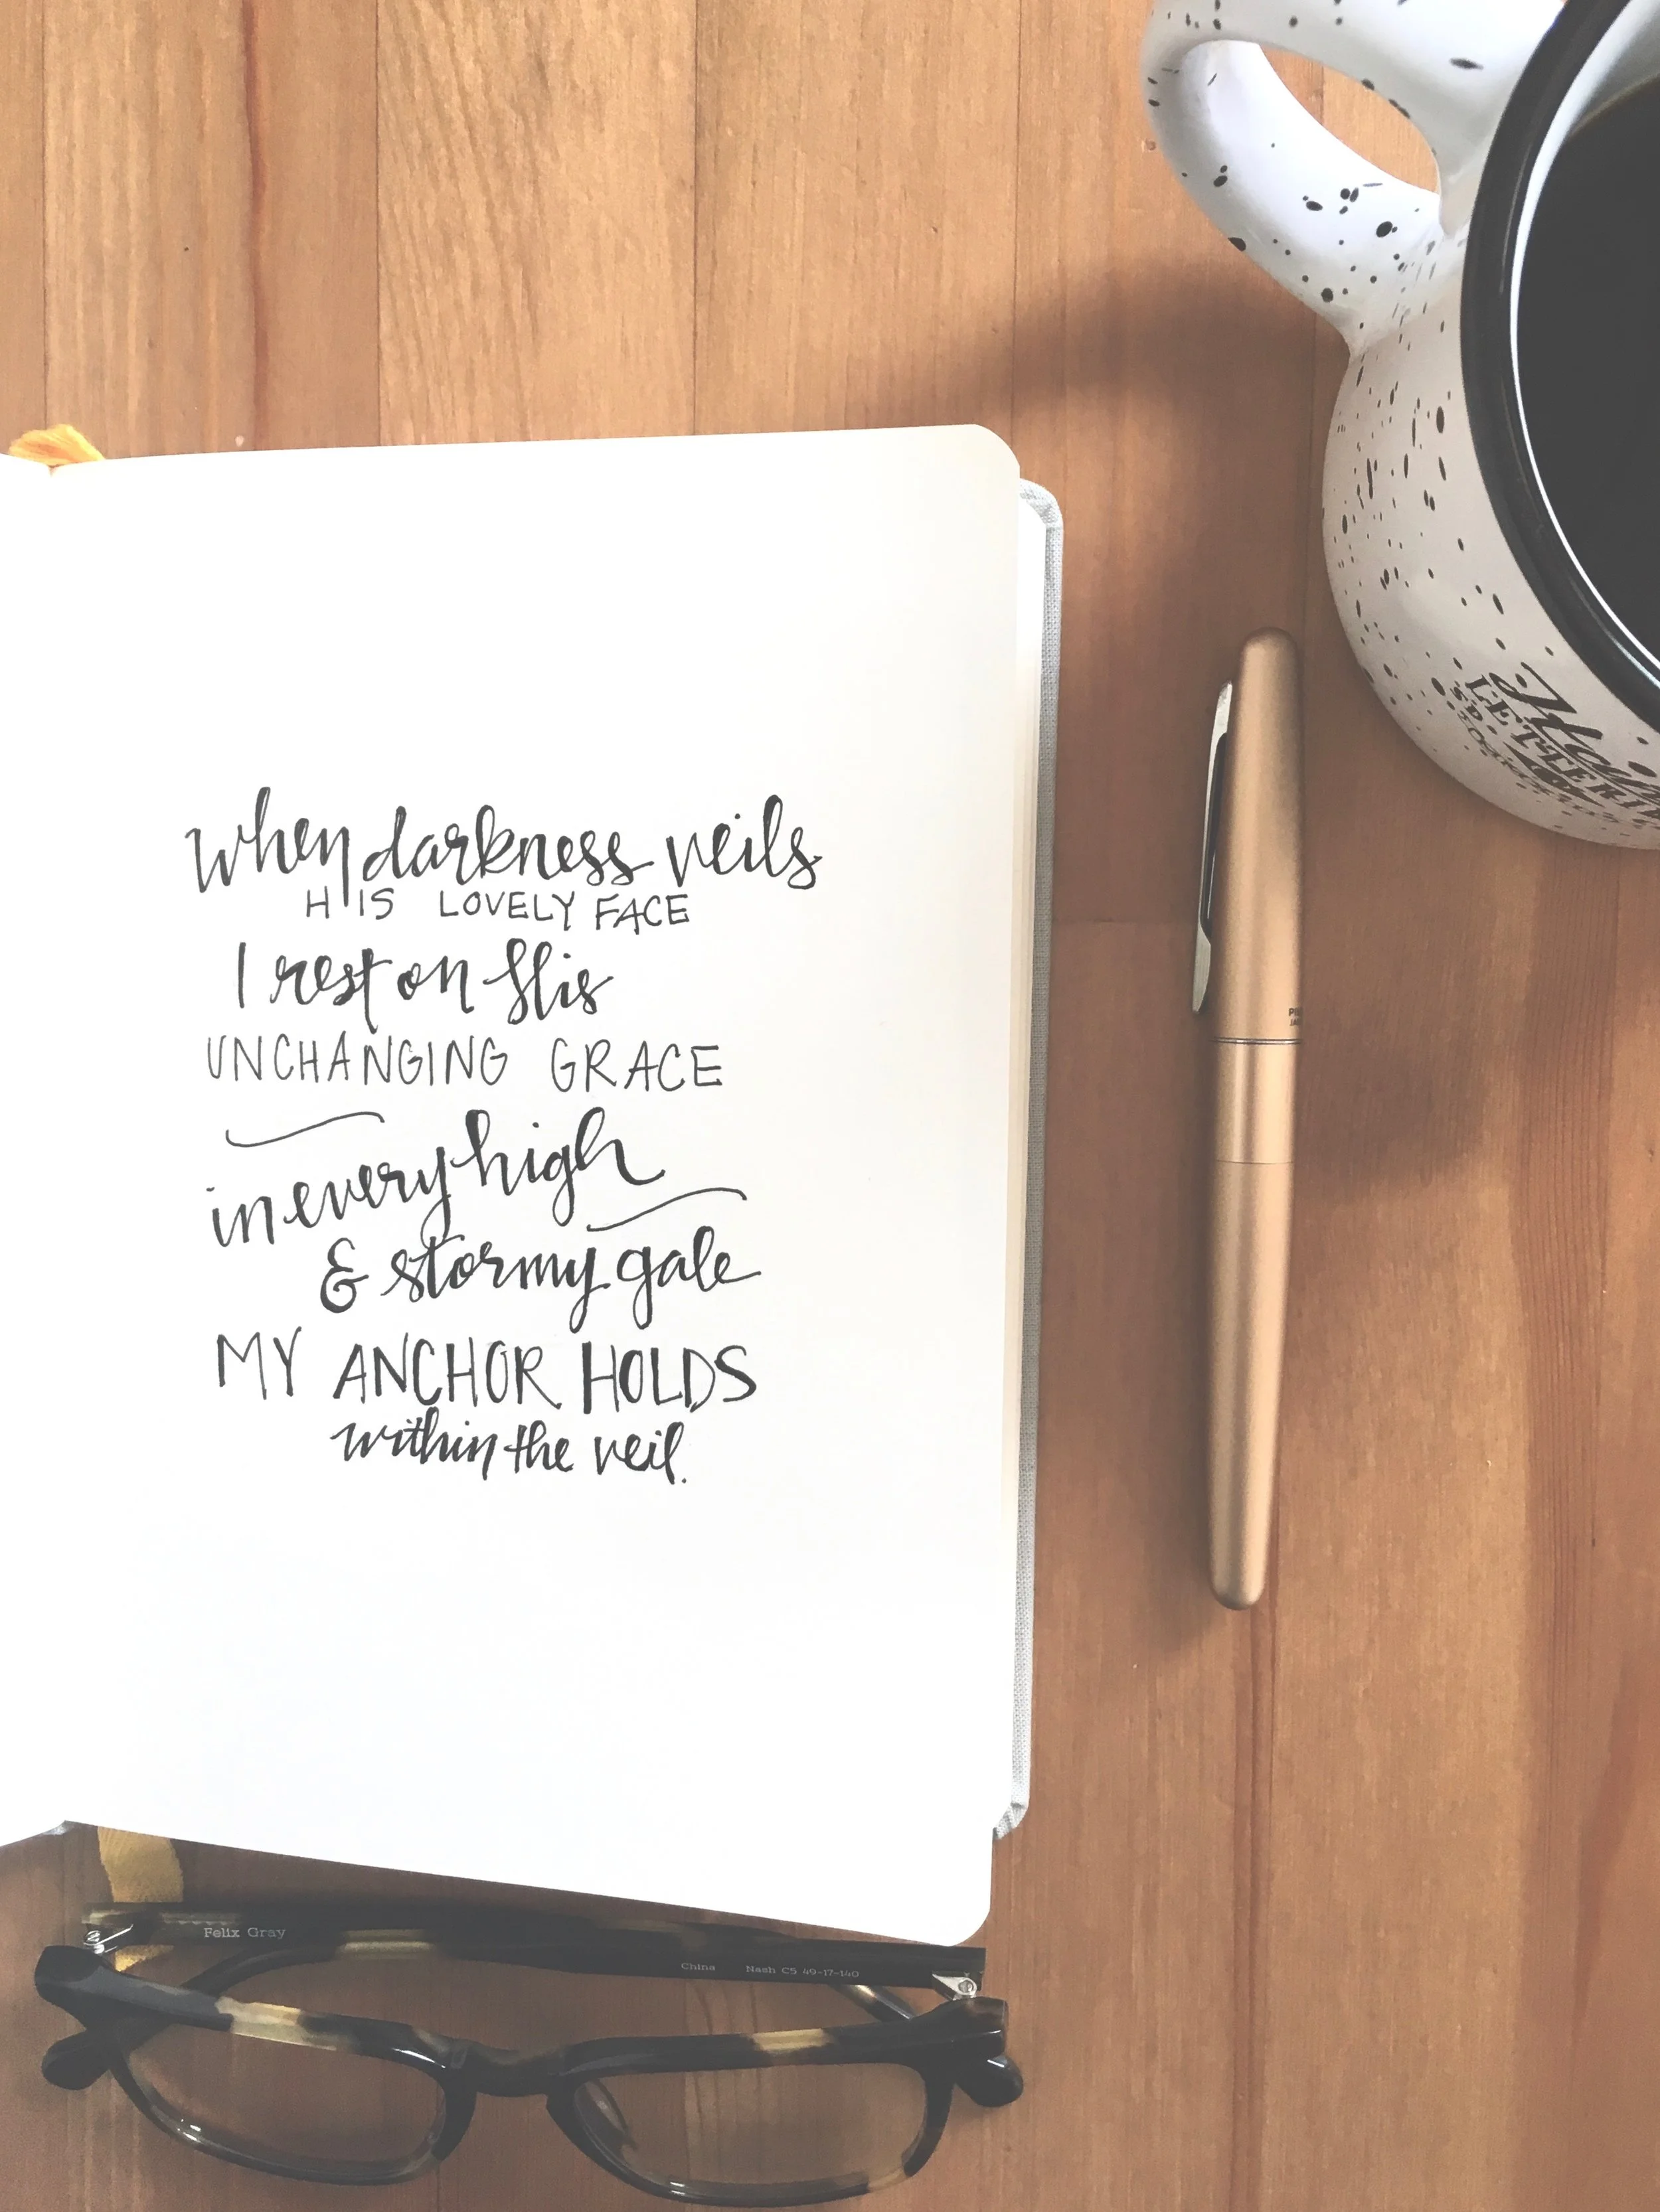 when darkness veils
HIS LOVELY FACE
I rest on His
UNCHANGING GRACE
in every high
& stormy gale
MY ANCHOR HOLDS
within the veil.
Felix Gray
China Nash C5 49-17-140